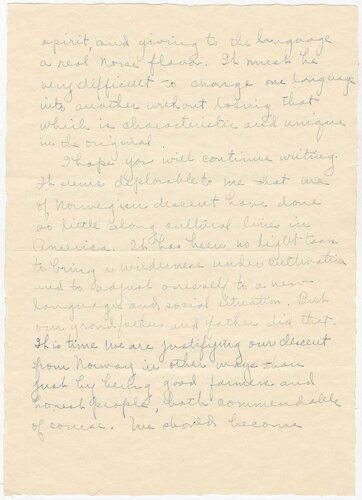 spirit, and giving to the language
a real Norse flavor. It must be
very difficult to change one language
into another without losing that
which is characteristic and unique
in the original.
I hope you will continue writing.
It seems deplorable to me that we
of Norwegian descent have done
so little along cultural lines in
America. It has been no light task
to bring a wilderness under cultivation
and to adjust oneself to a new
language and social situation. But
our grandfathers and fathers did that.
It is time we are justifying our descent
from Norway in other ways than
just by being good farmers and
honest people, both commendable
of course. We should become